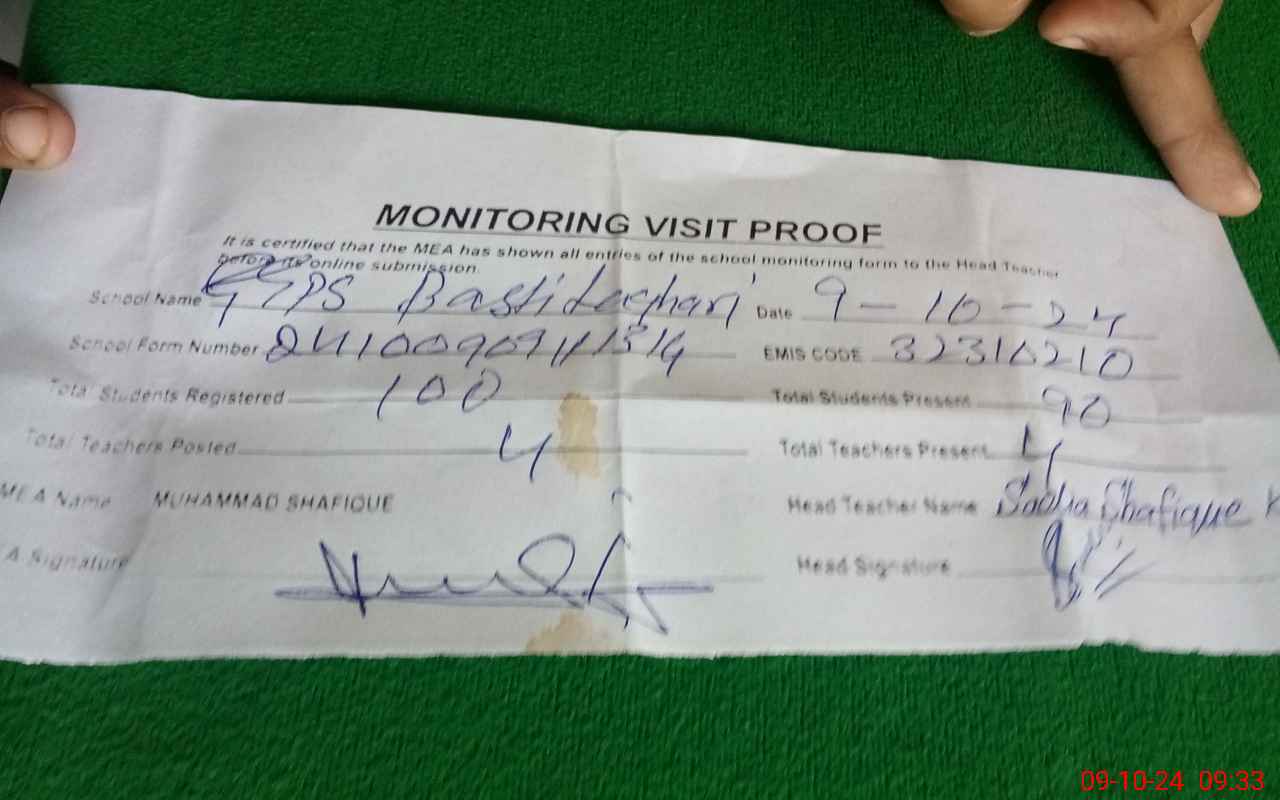 MONITORING VISIT PROOF
It is certified that the MEA has shown all entries of the school monitoring form to the Head Teacher
before its online submission.
School Name PS Basti Leghari Date 9-10-24
School Form Number EMIS CODE 32310210
Total Students Registered 100 Total Students Present 90
Total Teachers Posted 4 Total Teachers Present 4
MEA Name MUHAMMAD SHAFIQUE Head Teacher Name Shafique
A Signature Head Signature
09-10-24 09:33